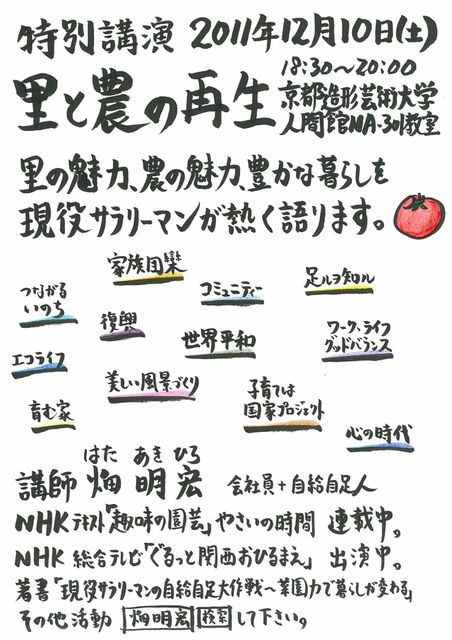 特別講演 2011年12月10日(土)
18:30～20:00
里と農の再生
京都造形芸術大学
人間館NA-301教室
里の魅力、農の魅力、豊かな暮らしを
現役サラリーマンが熱く語ります。
家族団欒
足ルヲ知ル
つながる
いのち
コミュニティー
復興
世界平和
ワーク、ライフ
グッドバランス
エコライフ
美しい風景づくり
子育ては
国家プロジェクト
育む家
心の時代
はた あき ひろ
講師 畑 明宏 会社員+自給自足人
NHKテキスト「趣味の園芸」やさいの時間 連載中。
NHK 総合テレビ「ぐるっと関西おひるまえ」 出演中。
著書「現役サラリーマンの自給自足大作戦～菜園力で暮らしが変わる」
その他活動 畑明宏 検索 して下さい。